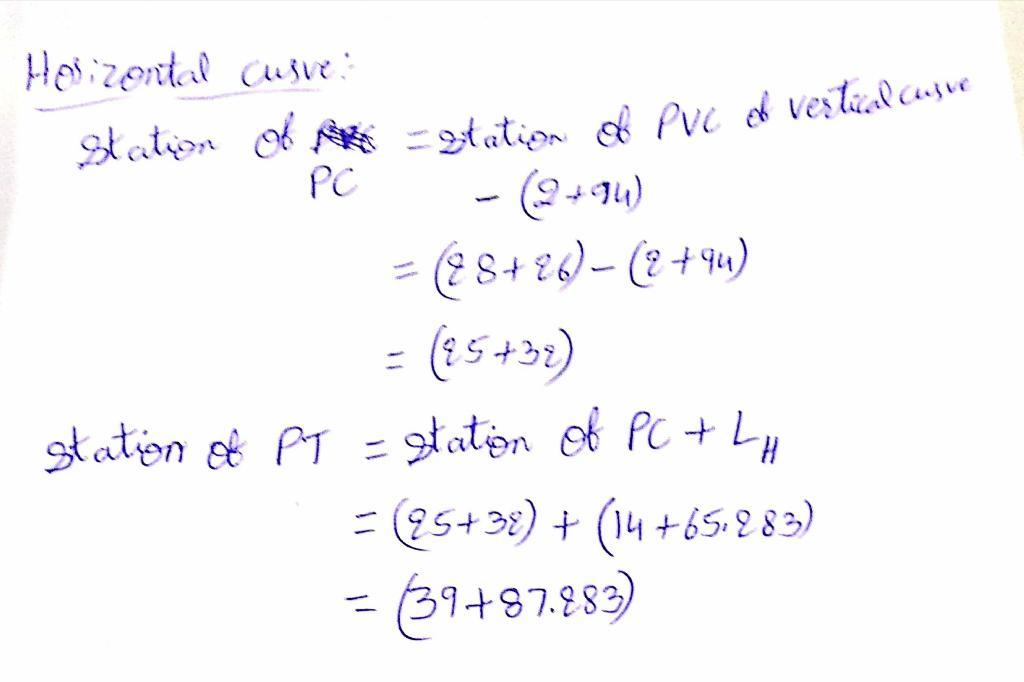 Horizontal curve:
Station of PC = station of PVC of vertical curve
- (2+94)
= (28+26) - (2+94)
= (25+32)
Station of PT = station of PC + L_H
= (25+32) + (14+65.283)
= (39+87.283)